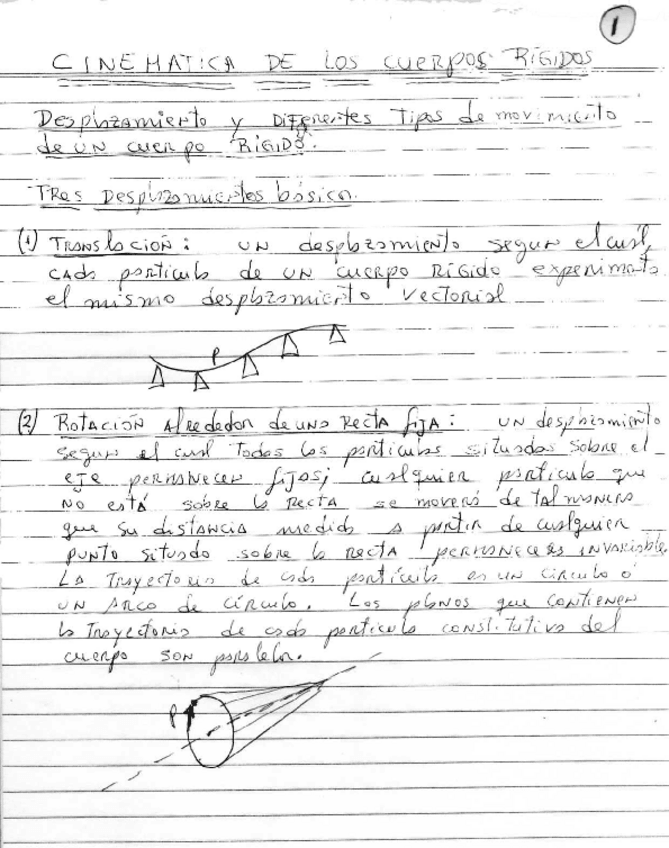 1
CINEMATICA DE LOS CUERPOS RIGIDOS
Desplazamiento y Diferentes Tipos de movimiento
de un cuerpo RIGIDO.
TRes Desplazamientos básicos.
(1) TRANSlación: UN desplazamiento segun el cual,
cada particula de UN cuerpo Rigido experimenta
el mismo desplazamiento vectorial
P
(2) ROTACIÓN Alrededor de una Recta fija: UN desplazamiento
segun el cual Todas las particulas situadas sobre el
eje permanecen fijas; cualquier particula que
NO está sobre la recta se moverá de tal manera
que su distancia medida a partir de cualquier
punto situado sobre la recta permanecerá invariable.
La Trayectoria de cada partícula es un circulo ó
UN Arco de círculo. Los planos que contienen
la Trayectoria de cada particula constitutiva del
cuerpo son paralelos.
P